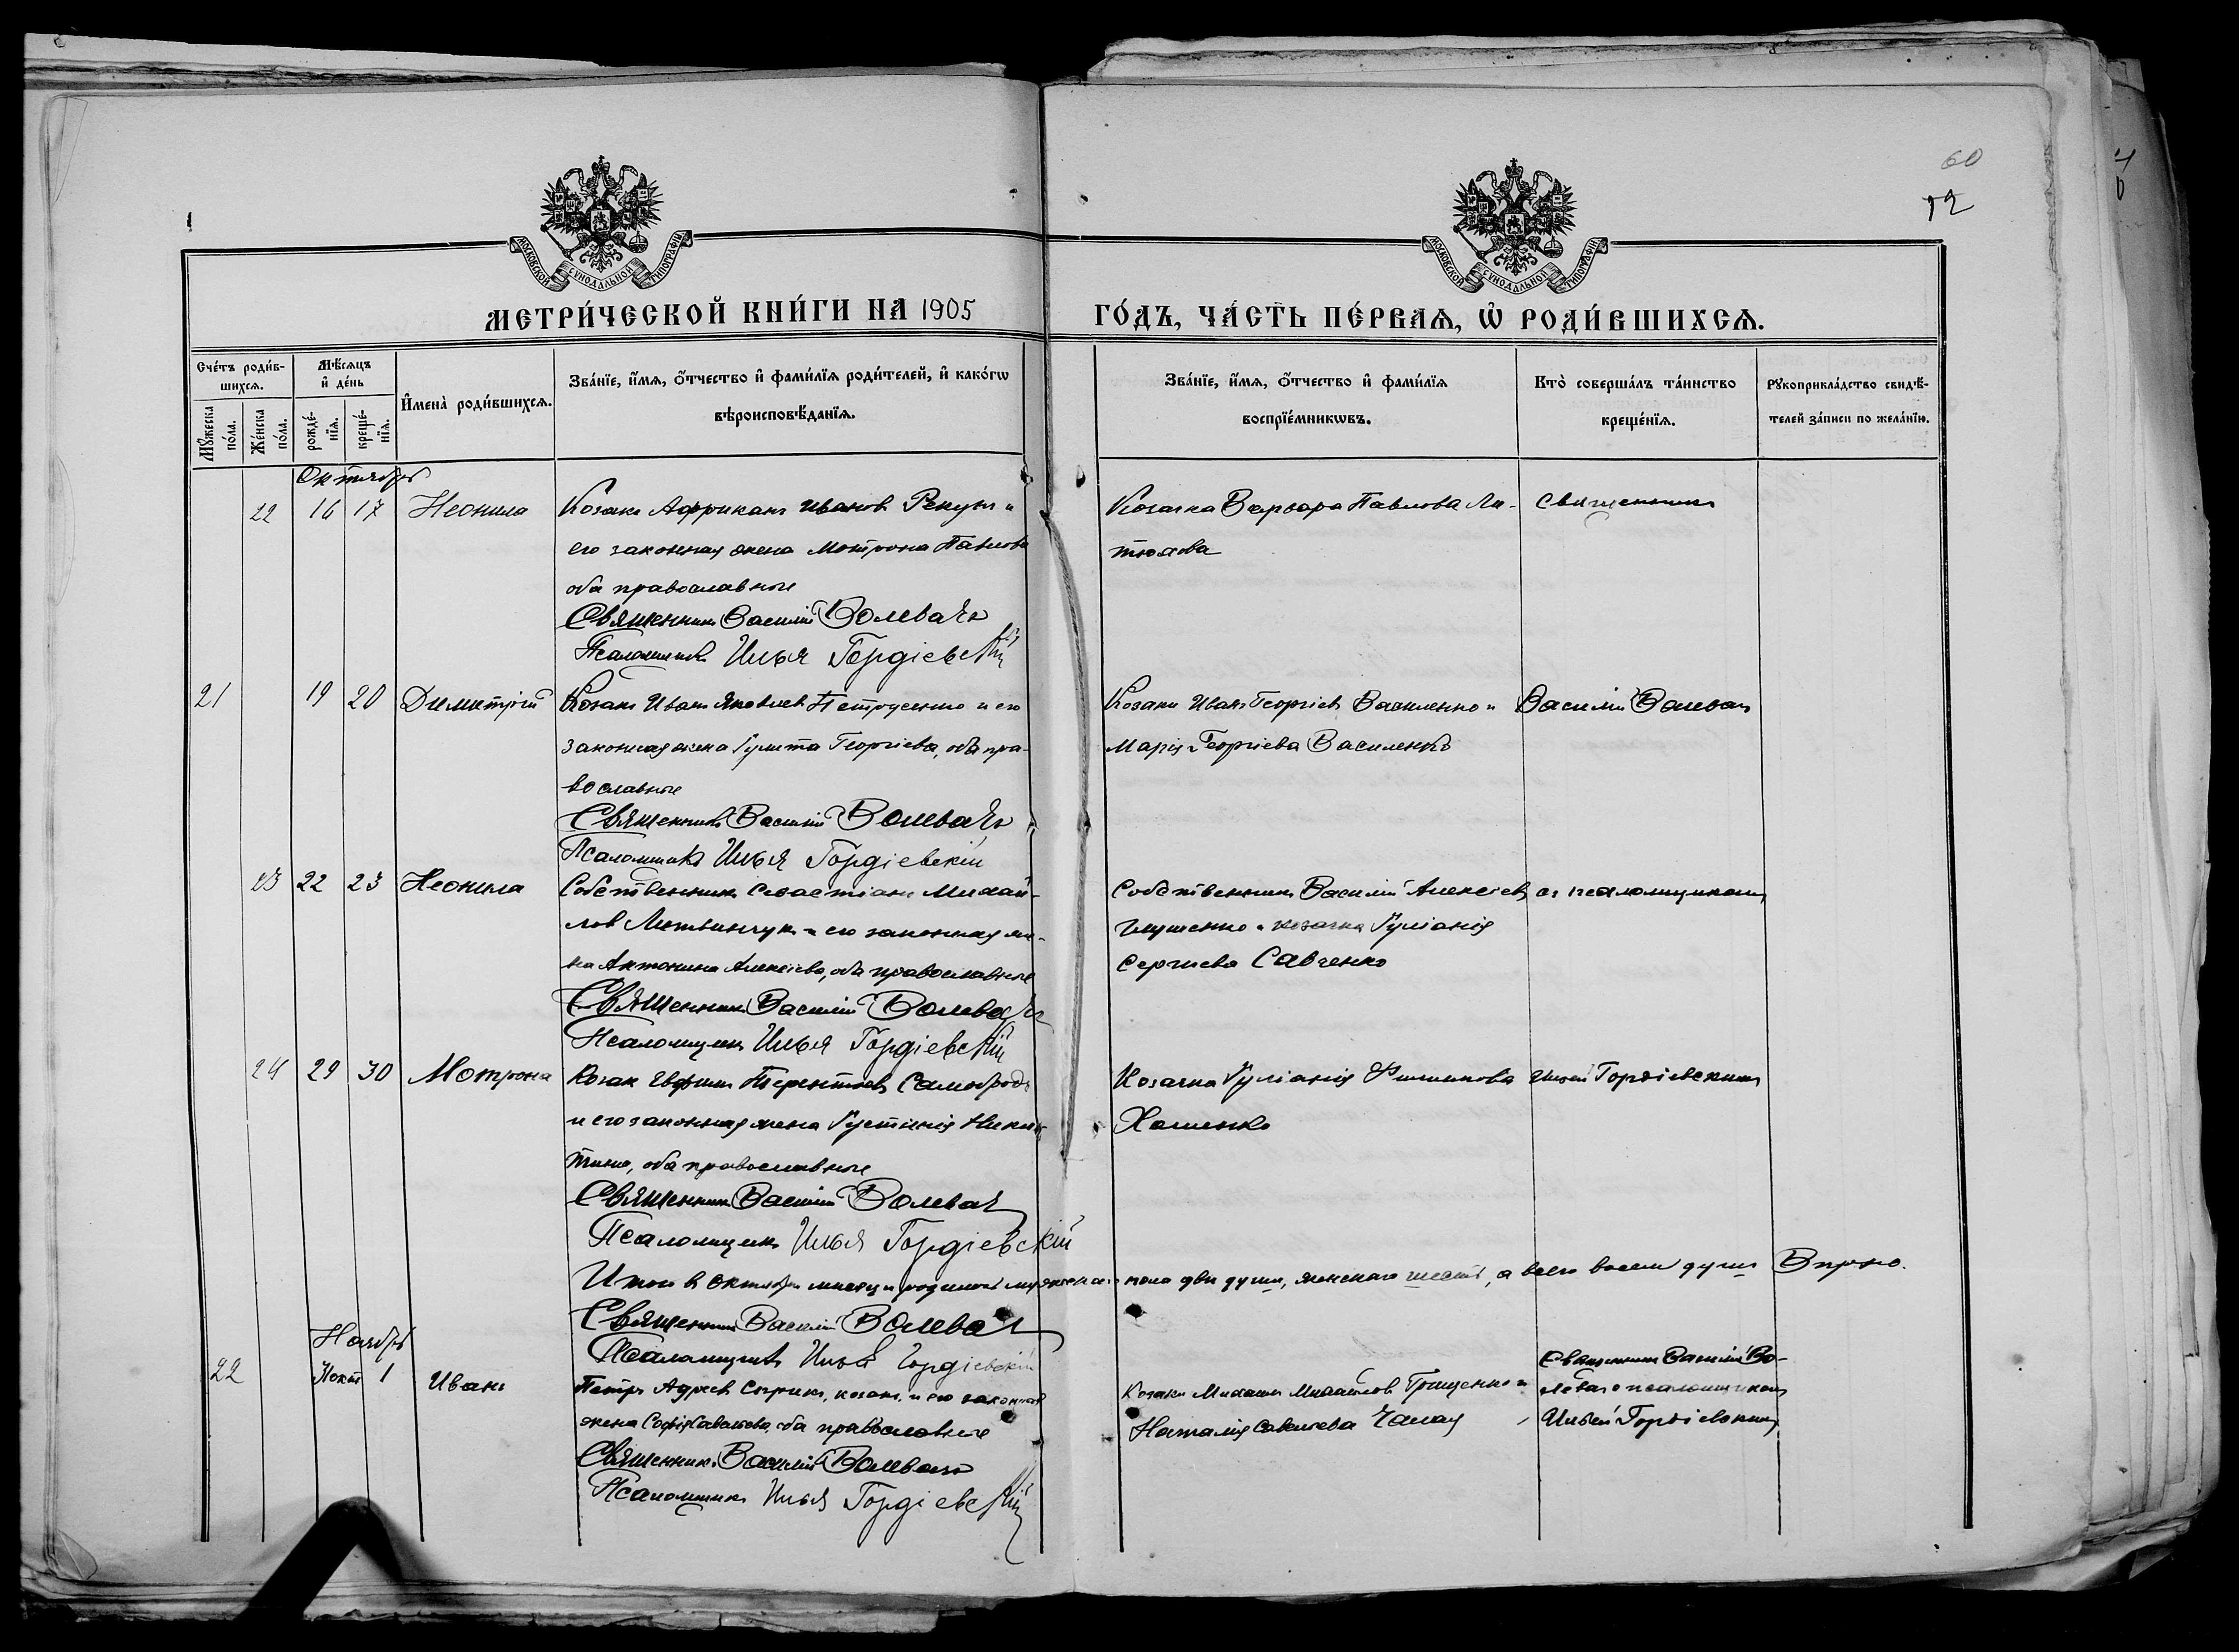 60
12
МОСКОВСКОЙ СУНОДАЛЬНОЙ ТИПОГРАФІИ
МОСКОВСКОЙ СУНОДАЛЬНОЙ ТИПОГРАФІИ
МЕТРИ́ЧЕСКОЙ КНИ́ГИ НА 1905
ГО́ДЪ, ЧА́СТЬ ПЕ́РВАѦ, Ѡ҆ РОДИ́ВШИХСѦ.
Сче́тъ роди́в-
шихсѧ.
Мꙋ́жеска по́ла.
Же́нска по́ла.
Мѣ́сѧцъ и҆ де́нь
рожде́-нїѧ.
креще́-нїѧ.
И҆мена̀ роди́вшихсѧ.
Зва́нїе, и҆́мѧ, ѻ҆́тчество и҆ фами́лїѧ роди́телей, и҆ како́гѡ
вѣроисповѣ́данїѧ.
Зва́нїе, и҆́мѧ, ѻ҆́тчество и҆ фами́лїѧ
воспрїе́мникѡвъ.
Кто̀ соверша́лъ та́инство
креще́нїѧ.
Рꙋкоприкла́дство свидѣ́-
телей за́писи по жела́нїю.
Октябрь
22 16 17 Неонила Козакъ Африканъ Иванов Рекунъ и
его законная жена Мотрона Павлова
оба православные
Священникъ Василій Волевачъ
Псаломщикъ Илья Гордіевскій
Козачка Варвара Павлова Ли-
тюхова
Священникъ
21 19 20 Димитрій Козакъ Иванъ Яковлев Петрусенко и его
законная жена Гулита Георгіева, оба пра-
вославные
Священникъ Василій Волевачъ
Псаломщикъ Илья Гордіевскій
Козаки Иванъ Георгіев Василенко и
Марія Георгіева Василенкъ
Василій Волевачъ
23 22 23 Неонила Собственникъ Севастіанъ Михай-
лов Литвинчукъ и его законная же-
на Антонина Алексіева, оба православные
Священникъ Василій Волевачъ
Псаломщикъ Илья Гордіевскій
Собственникъ Василій Алексіев
Глущенко и козачка Гуліанія
Сергіева Савченко
съ псаломщикомъ
24 29 30 Мотрона Козак Евфимъ Терентіев Самобродъ
и его законная жена Густинія Ники-
тина, оба православные
Священникъ Василій Волевач
Псаломщикъ Илья Гордіевскій
Козачка Гуліанія Филипова
Хоменко
Ильей Гордіевскимъ
Итого в Октябрѣ мѣсяцѣ родилось мужескаго пола двѣ души, женскаго шесть, а всего восемь душъ Вѣрно.
Священникъ Василій Волевач
Псаломщикъ Илья Гордіевскій
Ноябрь
22 1 Иванъ
Петръ Сприкъ, козакъ, и его законная
жена Софія Савельева, оба православные
Священникъ Василій Волевачъ
Псаломщикъ Илья Гордіевскій
Козаки Михаилъ Михайлов Грищенко и
Наталія Савельева Чалая
Священникъ Василій Во-
левач с псаломщикомъ
Ильей Гордіевскимъ